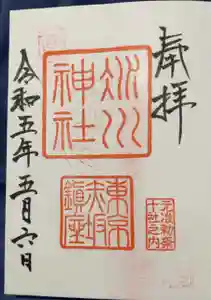 奉拝
氷川
神社
東京
赤坂
鎮座
准勅祭
十社之内
令和五年五月六日